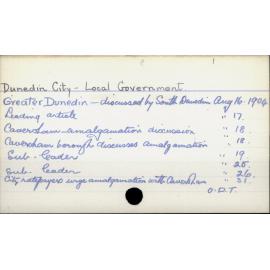 1
Dunedin City - Local Government.
Greater Dunedin - discussed by South Dunedin Aug 16. 1904
Leading article " 17.
Caversham amalgamation discussion " 18.
Caversham borough discusses amalgamation " 18.
Sub-leader " 19
sub. leader " 25.
" 26.
City ratepayers urge amalgamation with Caversham " 31.
O.D.T.